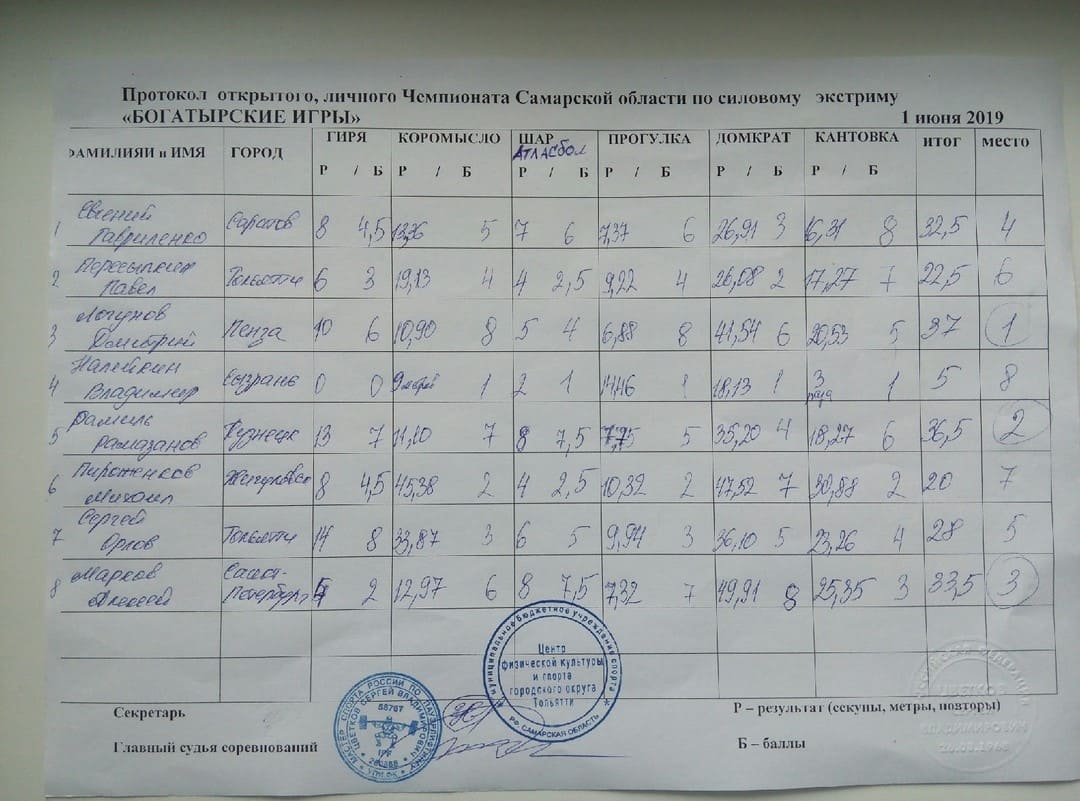 Протокол открытого, личного Чемпионата Самарской области по силовому экстриму
«БОГАТЫРСКИЕ ИГРЫ» 1 июня 2019
ФАМИЛИЯИ и ИМЯ ГОРОД ГИРЯ КОРОМЫСЛО ШАР ПРОГУЛКА ДОМКРАТ КАНТОВКА ИТОГ МЕСТО
АТЛАСБОЛ
Р / Б Р / Б Р / Б Р / Б Р / Б Р / Б
1 Евгений Гавриленко Саратов 8 4,5 5 7 6 7,37 6 26,91 3 16,31 8 32,5 4
2 Пересыпкин Павел Тольятти 6 3 19,13 4 4 2,5 9,22 4 26,08 2 17,27 7 22,5 6
3 Логунов Дмитрий Пенза 10 6 10,90 8 5 4 6,88 8 41,54 6 20,53 5 37 1
4 Налейкин Владимир Сызрань 0 0 1 2 1 14,46 1 18,13 1 3 раза 1 5 8
5 Рамиль Рамазанов Кузнецк 13 7 11,10 7 8 7,5 7,75 5 35,20 4 18,27 6 36,5 2
6 Пироженков Михаил Жигулевск 8 4,5 45,38 2 4 2,5 10,32 2 47,52 7 30,88 2 20 7
7 Сергей Орлов Тольятти 14 8 33,87 3 6 5 9,94 3 36,10 5 23,26 4 28 5
8 Марков Алексей Санкт-Петербург 2 12,97 6 8 7,5 7,32 7 49,91 8 25,35 3 33,5 3
Секретарь
Р – результат (секуны, метры, повторы)
Главный судья соревнований
Б – баллы
муниципальное бюджетное учреждение спорта
Центр
физической культуры
и спорта
городского округа
Тольятти
РФ, САМАРСКАЯ ОБЛАСТЬ
МАСТЕР СПОРТА РОССИИ ПО ПАУЭРЛИФТИНГУ
ЦВЕТКОВ СЕРГЕЙ ВЛАДИМИРОВИЧ
ЦВЕТКОВ
ВЛАДИМИРОВИЧ